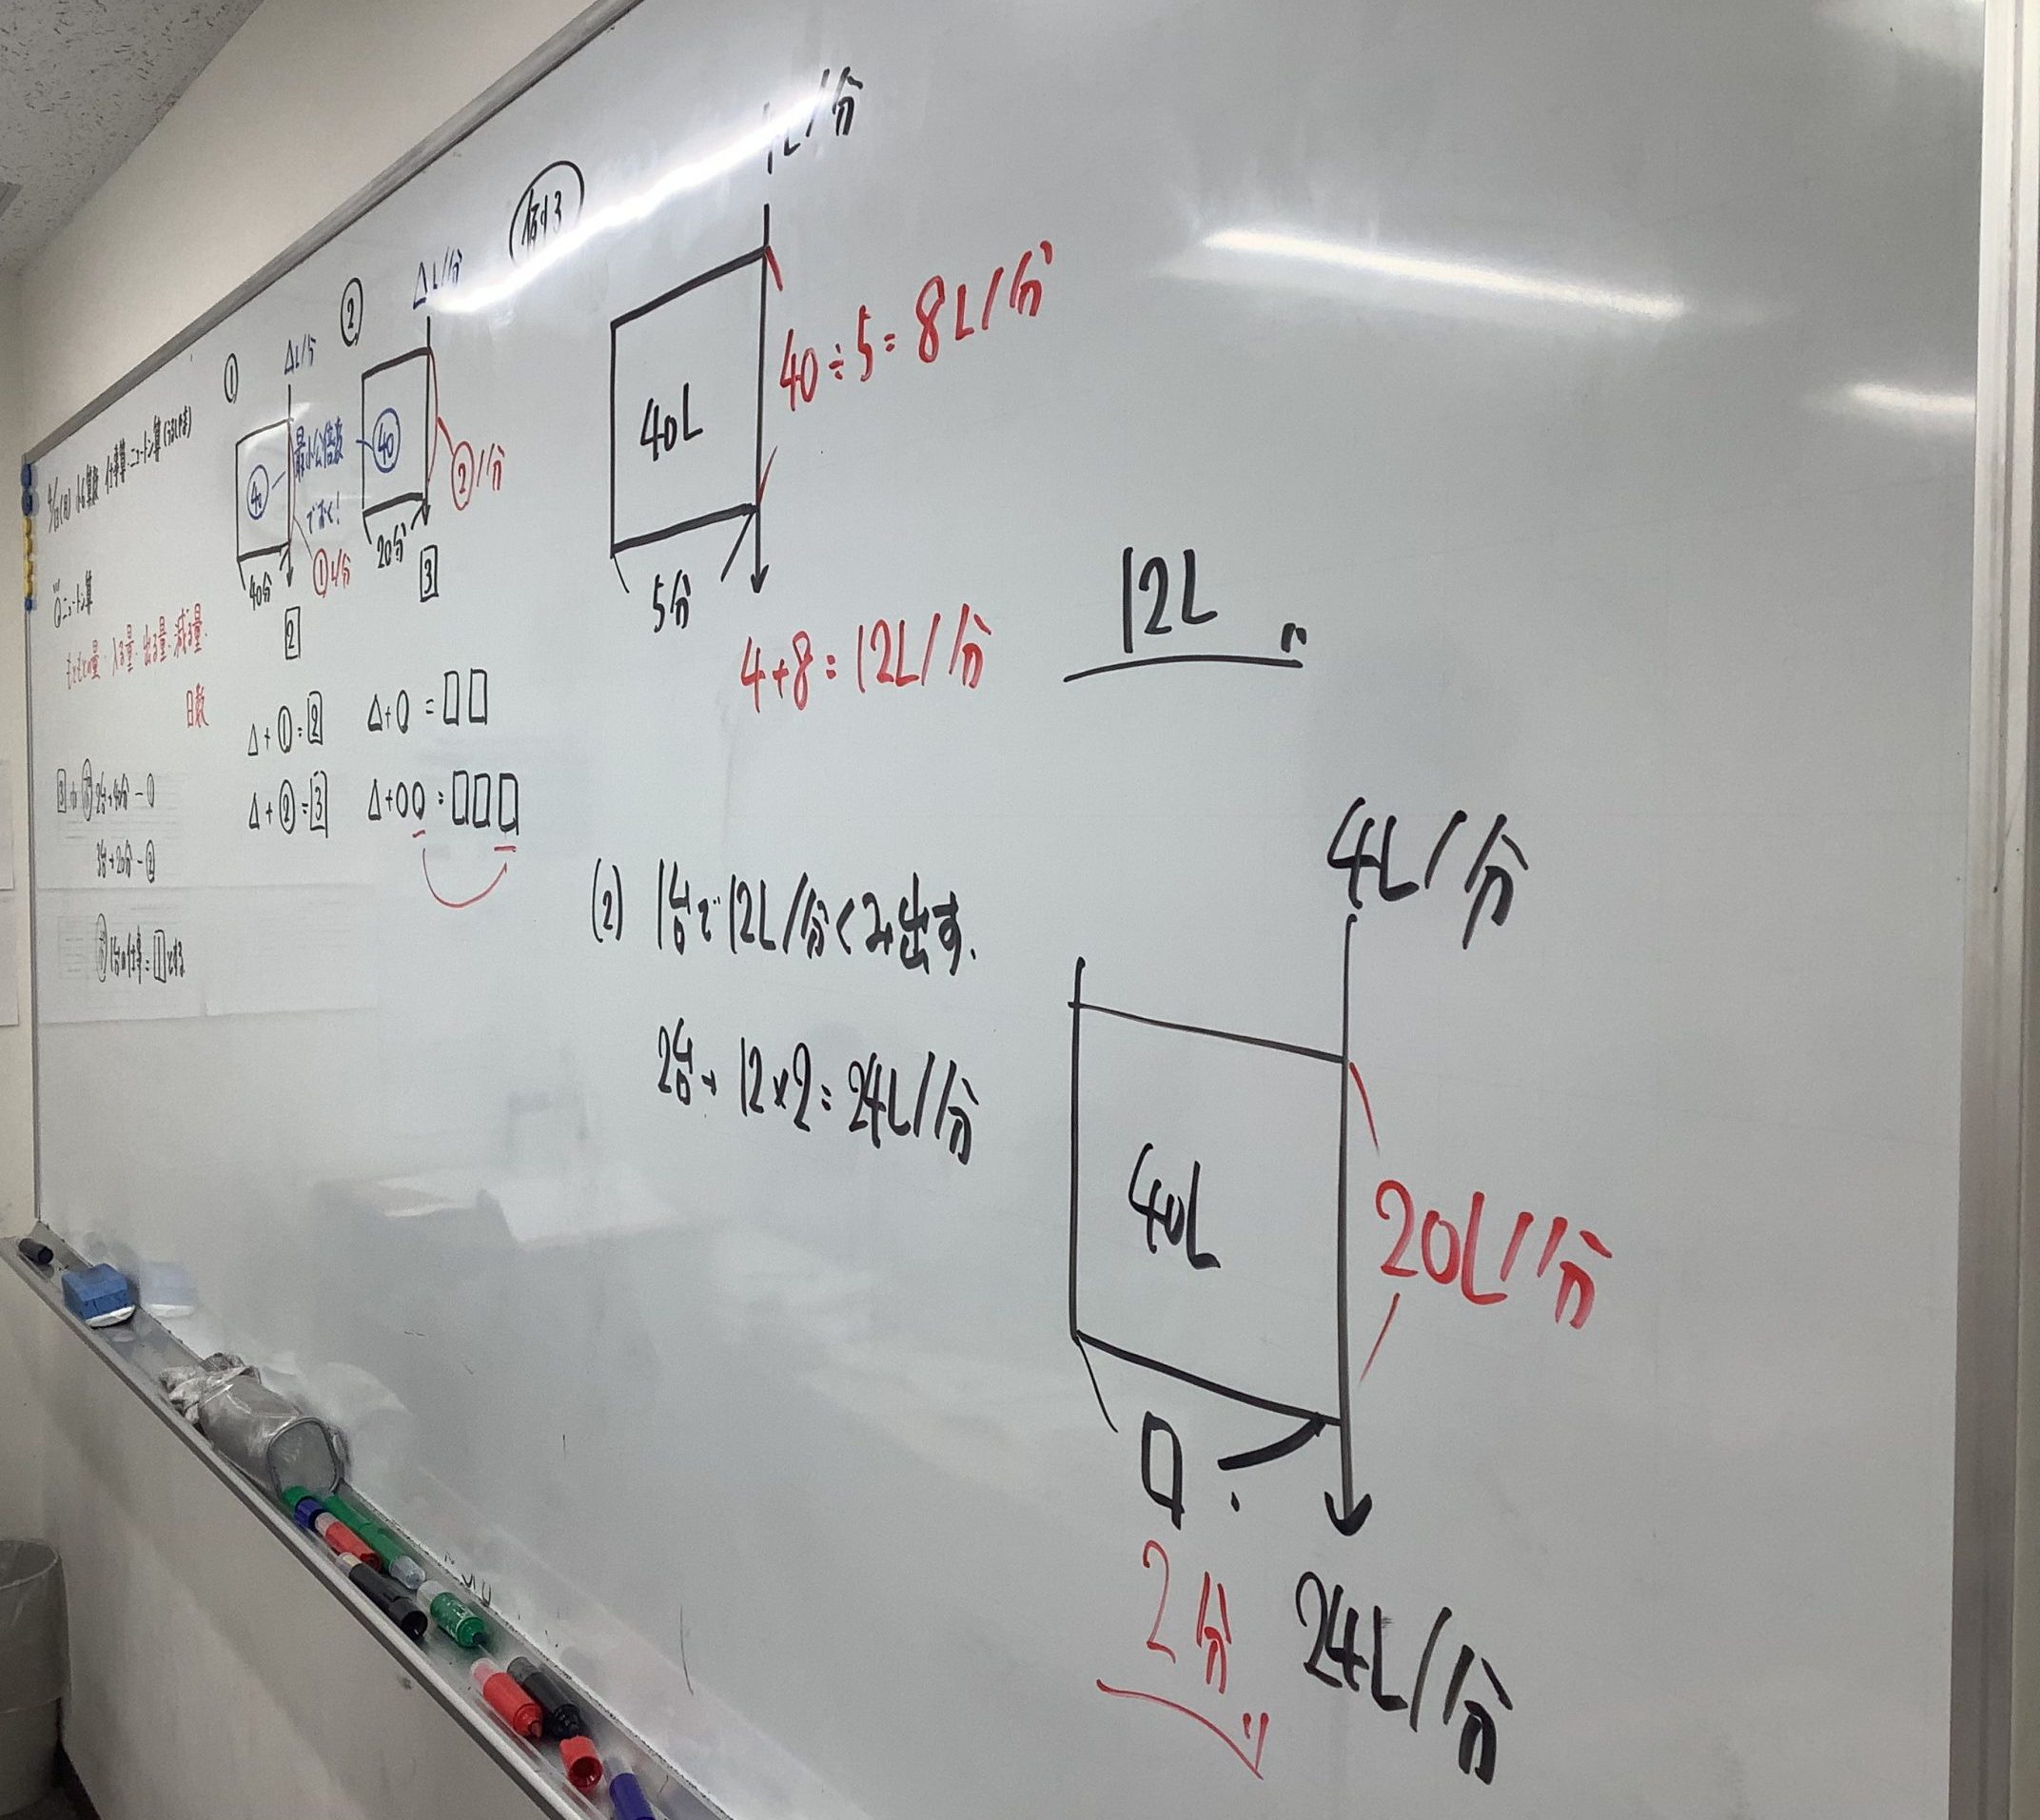 小6算数 仕事算・ニュートン算
ニュートン算
量・入る量・出る量・減る量・
日数
2台→40分-①
3台→20分-②
1台の仕事=1とする
①
△L/分
㊵
最小公倍数
でおく!
40分
①L/分
2
②
△L/分
㊵
②/分
20分
3
△+①=2
△+②=3
△+○=□□
△+○○=□□□
例3
L/分
40L
40÷5=8L/分
5分
4+8=12L/分
12L
(2) 1台で12L/分くみ出す.
2台→12×2=24L/分
4L/分
40L
20L/分
□
2分
24L/分